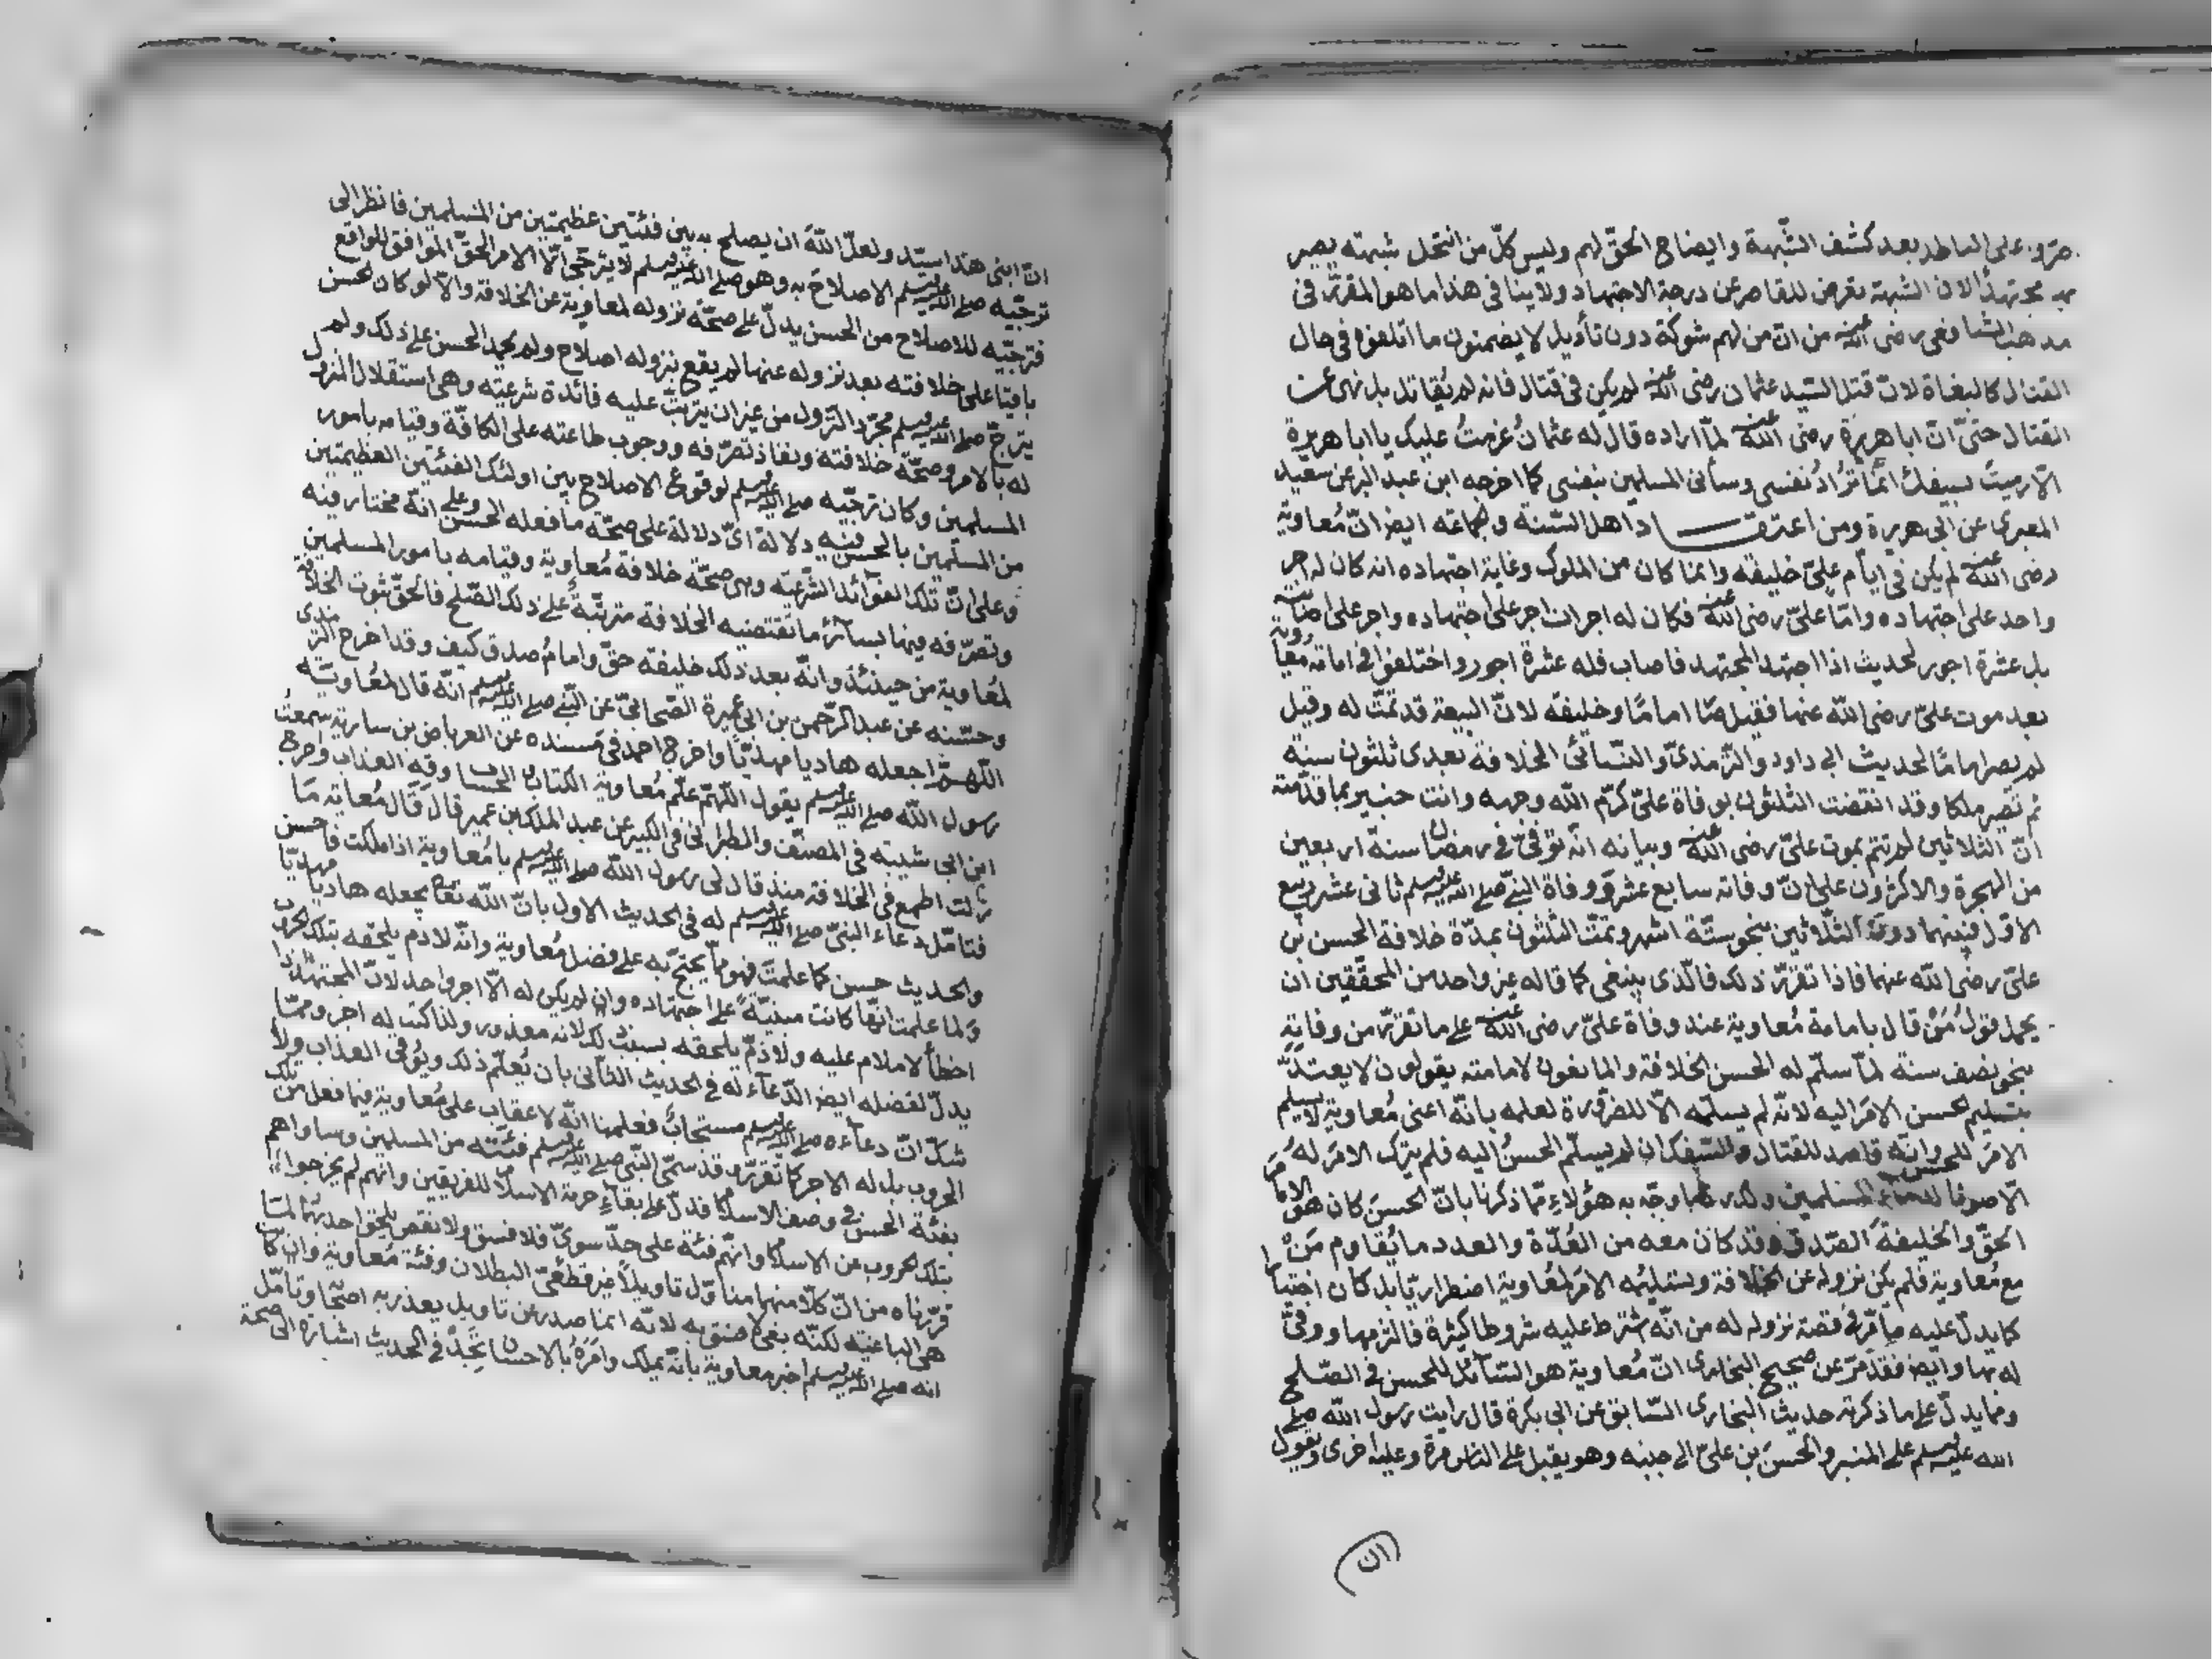 صرّوا على الباطل بعد كشف الشّبهة وايضاح الحقّ لهم وليس كلّ من انتحل شبهته يصير
بها مجتهدًا لان الشبهة تعرض للقاصر عن درجة الاجتهاد ولا ينافى هذا ما هو المقرّر فى
مذهب الشافعى رضى الله عنه من انّ من لهم شوكة دون تأويل لا يضمنون ما اتلفوه فى حال
القتال كالبغاة لانّ قتل السّيد عثمان رضى الله عنه لم يكن فى قتال فانه لم يُقاتل بل نهى عن
القتال حتىّ انّ ابا هريرة رضى الله عنه لمّا اراده قال له عثمانُ عزمتُ عليك يا ابا هريرة
الّا رميتَ بسيفك انّما تُرادُ نفسى وسأقى المسلمين بنفسى كما اخرجه ابن عبد البر عن سعيد
المقبرى عن ابى هريرة ومن اعتقاد اهل السّنة والجماعة ايضا انّ مُعاوية
رضى الله عنه لم يكن فى ايّام علىّ خليفة وانما كان من الملوك وغاية اجتهاده انه كان له اجر
واحد على اجتهاده وامّا علىّ رضى الله عنه فكان له اجران اجر على اجتهاده واجر على اصابته
بل عشرة اجور لحديث اذا اجتهد المجتهد فاصاب فله عشرة اجور واختلفوا فى امامة مُعاوية
بعد موت علىّ رضى الله عنهما فقيل صار امامًا وخليفة لانّ البيعة قد تمّت له وقيل
لم يصر امامًا لحديث ابى داود والترّمذىّ والنّسائىّ الخلافة بعدى ثلثون سنة
ثم تصير ملكا وقد انقضت الثلثون بوفاة علىّ كرّم الله وجهه وانت خبير بما قدّمته
انّ الثلاثين لم تتم بموت علىّ رضى الله عنه وبيانه انّه توفّىّ فى رمضان سنة اربعين
من الهجرة والاكثرون على انّ وفاته سابع عشره ووفاة النّبى صلى الله عليه وسلم ثانى عشر ربيع
الاوّل فبينهما دون الثّلاثين بنحو ستّة اشهر وتمّت الثلثون بمدّة خلافة الحسن بن
علىّ رضى الله عنهما فاذا تقرّر ذلك فالّذى ينبغى كما قاله غير واحد من المحقّقين ان
يحمل قولُ مَنْ قال بامامة مُعاوية عند وفاة علىّ رضى الله عنه على ما تقرّر من وفاته
بنحو نصف سنة لمّا سلّم له الحسن الخلافة والمانعون لامامته يقولون لا يعتدّ
بتسليم الحسن الامَر اليه لانّه لم يسلمّه الّا للضّرورة لعلمه بانّه اعنى مُعاوية لا يسلّم
الامرَ للحسن وانّه قاصد للقتال والسّفك ان لم يسلّم الحسنُ اليه فلم يترك الامرَ له
الّا صونًا لدماء المسلمين ولك رد ما وجّه به هؤلاءِ ممّا ذكرنا بانّ الحسنَ كان هو الامامَ
الحقّ والخليفةَ الصّدق وقد كان معه من العُدّة والعدد ما يُقاوم مَنْ
مع مُعاوية فلم يكن نزوله عن الخلافة وتسليمُه الامَر لمُعاوية اضطراريّا بل كان اختياريا
كما يدلّ عليه ما مرّ فى قصة نزوله له من انّه اشترط عليه شروطا كثيرة فالتزمها ووفىّ
له بها وايضا فقد مرّ عن صحيح البخارى انّ مُعاوية هو السّائلُ للحسن فى الصّلح
ومما يدلّ على ما ذكرته حديث البخارى السّابق عن ابى بكرة قال رايت رسول الله صلى
الله عليه وسلم على المنبر والحسنَ بن علىّ الى جنبه وهو يقبل على الناس مرة وعليه اخرى ويقول
انّ
انّ ابنى هذا سيّد ولعلّ اللّهَ ان يصلح به بين فئتين عظيمتين من المسلمين فانظر الى
ترجّيه صلى الله عليه وسلم الاصلاحَ به وهو صلى الله عليه وسلم لا يترجّى الّا الامر الحقّ الموافق للواقع
فترجّيه للاصلاح من الحسن يدلّ على صحّة نزوله لمعاوية عن الخلافة والّا لو كان الحسن
باقيًا على خلافته بعد نزوله عنها لم يقع بنزوله اصلاح ولم يحمد الحسن على ذلك ولم
يترجّ صلى الله عليه وسلم مجرّد النّزول من غير ان يترتّب عليه فائدة شرعيّة وهى استقلال المنزول
له بالامر وصحّة خلافته ونفاذ تصرّفه ووجوب طاعته على الكافّة وقيامه بامور
المسلمين وكان ترجّيه صلى الله عليه وسلم لوقوع الاصلاح بين اولئك الفئتين العظيمتين
من المسلمين بالحسن فيه دلالة اىّ دلالة على صحّة ما فعله الحسن وعلى انّه مختار فيه
وعلى انّ تلك الفوائد الشّرعيّة وهى صحّة خلافة مُعاوية وقيامه بامور المسلمين
وتصرّفه فيها بسائر ما تقتضيه الخلافة مترتّبةٌ على ذلك الصّلح فالحقّ ثبوت الخلافة
لمُعاوية من حينئذ وانّه بعد ذلك خليفة حقّ وامامُ صدق كيف وقد اخرج الترّمذى
وحسّنه عن عبد الرّحمن بن ابى عميرة الصّحابىّ عن النّبى صلى الله عليه وسلم انّه قال لمُعاوية
اللّهمّ اجعله هاديا مهديّا واخرج احمد فى مسنده عن العرباض بن سارية سمعتُ
رسول اللّه صلى الله عليه وسلم يقول اللّهمّ علّم مُعاوية الكتابَ والحساب وقِه العذاب واخرج
ابن ابى شيبة فى المصنّف والطّبرانى فى الكبير عن عبد الملك بن عمير قال قال مُعاوية مَا
زلت اطمع فى الخلافة منذ قال لى رسول اللّه صلى الله عليه وسلم يا مُعاوية اذا ملكت فاحسن
فتامّل دعاءَ النبىّ صلى الله عليه وسلم له فى الحديث الاول بانّ اللّه تعالى يجعله هاديا مهديّا
والحديث حسن كما علمتَ فهو ممّا يحتجّ به على فضل مُعاوية وانّه لا ذم يلحقه بتلك الحروب
ولما علمت انّها كانت مبنيّةً على اجتهاده وان لم يكن له الّا اجر واحد لانّ المجتهد اذا
اخطأ لا ملام عليه ولا ذمّ يلحقه بسبب ذلك لانه معذور ولذا كتب له اجر وممّا
يدلّ لفضله ايضا الدّعاءُ له فى الحديث الثّانى بان يُعلّم ذلك ويُوقى العذاب ولا
شكّ انّ دعآءه صلى الله عليه وسلم مستجابٌ فعلمنا انّه لا عقاب على مُعاوية فيما فعل من تلك
الحروب بل له الاجر كما تقرّر وقد سمّى النّبى صلى الله عليه وسلم فئته من المسلمين وساواهم
بفئة الحسن فى وصف الاسلام فدلّ على بقاءِ حرمة الاسلام للفريقين وانهم لم يخرجوا
بتلك الحروب عن الاسلام وانّهم فئة على حدّ سوىّ فلا فسق ولا نقص يلحق احدهُما لمَا
قرّرناه من انّ كلّا منهما متاوّل تاويلًا غير قطعىّ البطلان وفئة مُعاوية وان كانت
هى الباغية لكنّه بغى لا فسق به لانّه انما صدر عن تاويل يعذر به اصحابه وتامّل
انه صلى الله عليه وسلم اخبر معاوية بانّه يملك وامَرَهُ بالاحسان تَجِدْ فى الحديث اشارة الى صحة